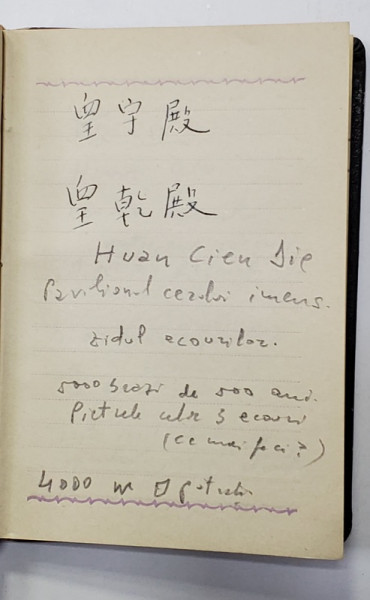 皇宇殿
皇乾殿
Huan Cien Die
Pavilionul cerului imens.
zidul ecourilor.
5000 brazi de 500 ani.
Pietrele celor 3 ecouri
(ce mai faci?)
4000 m